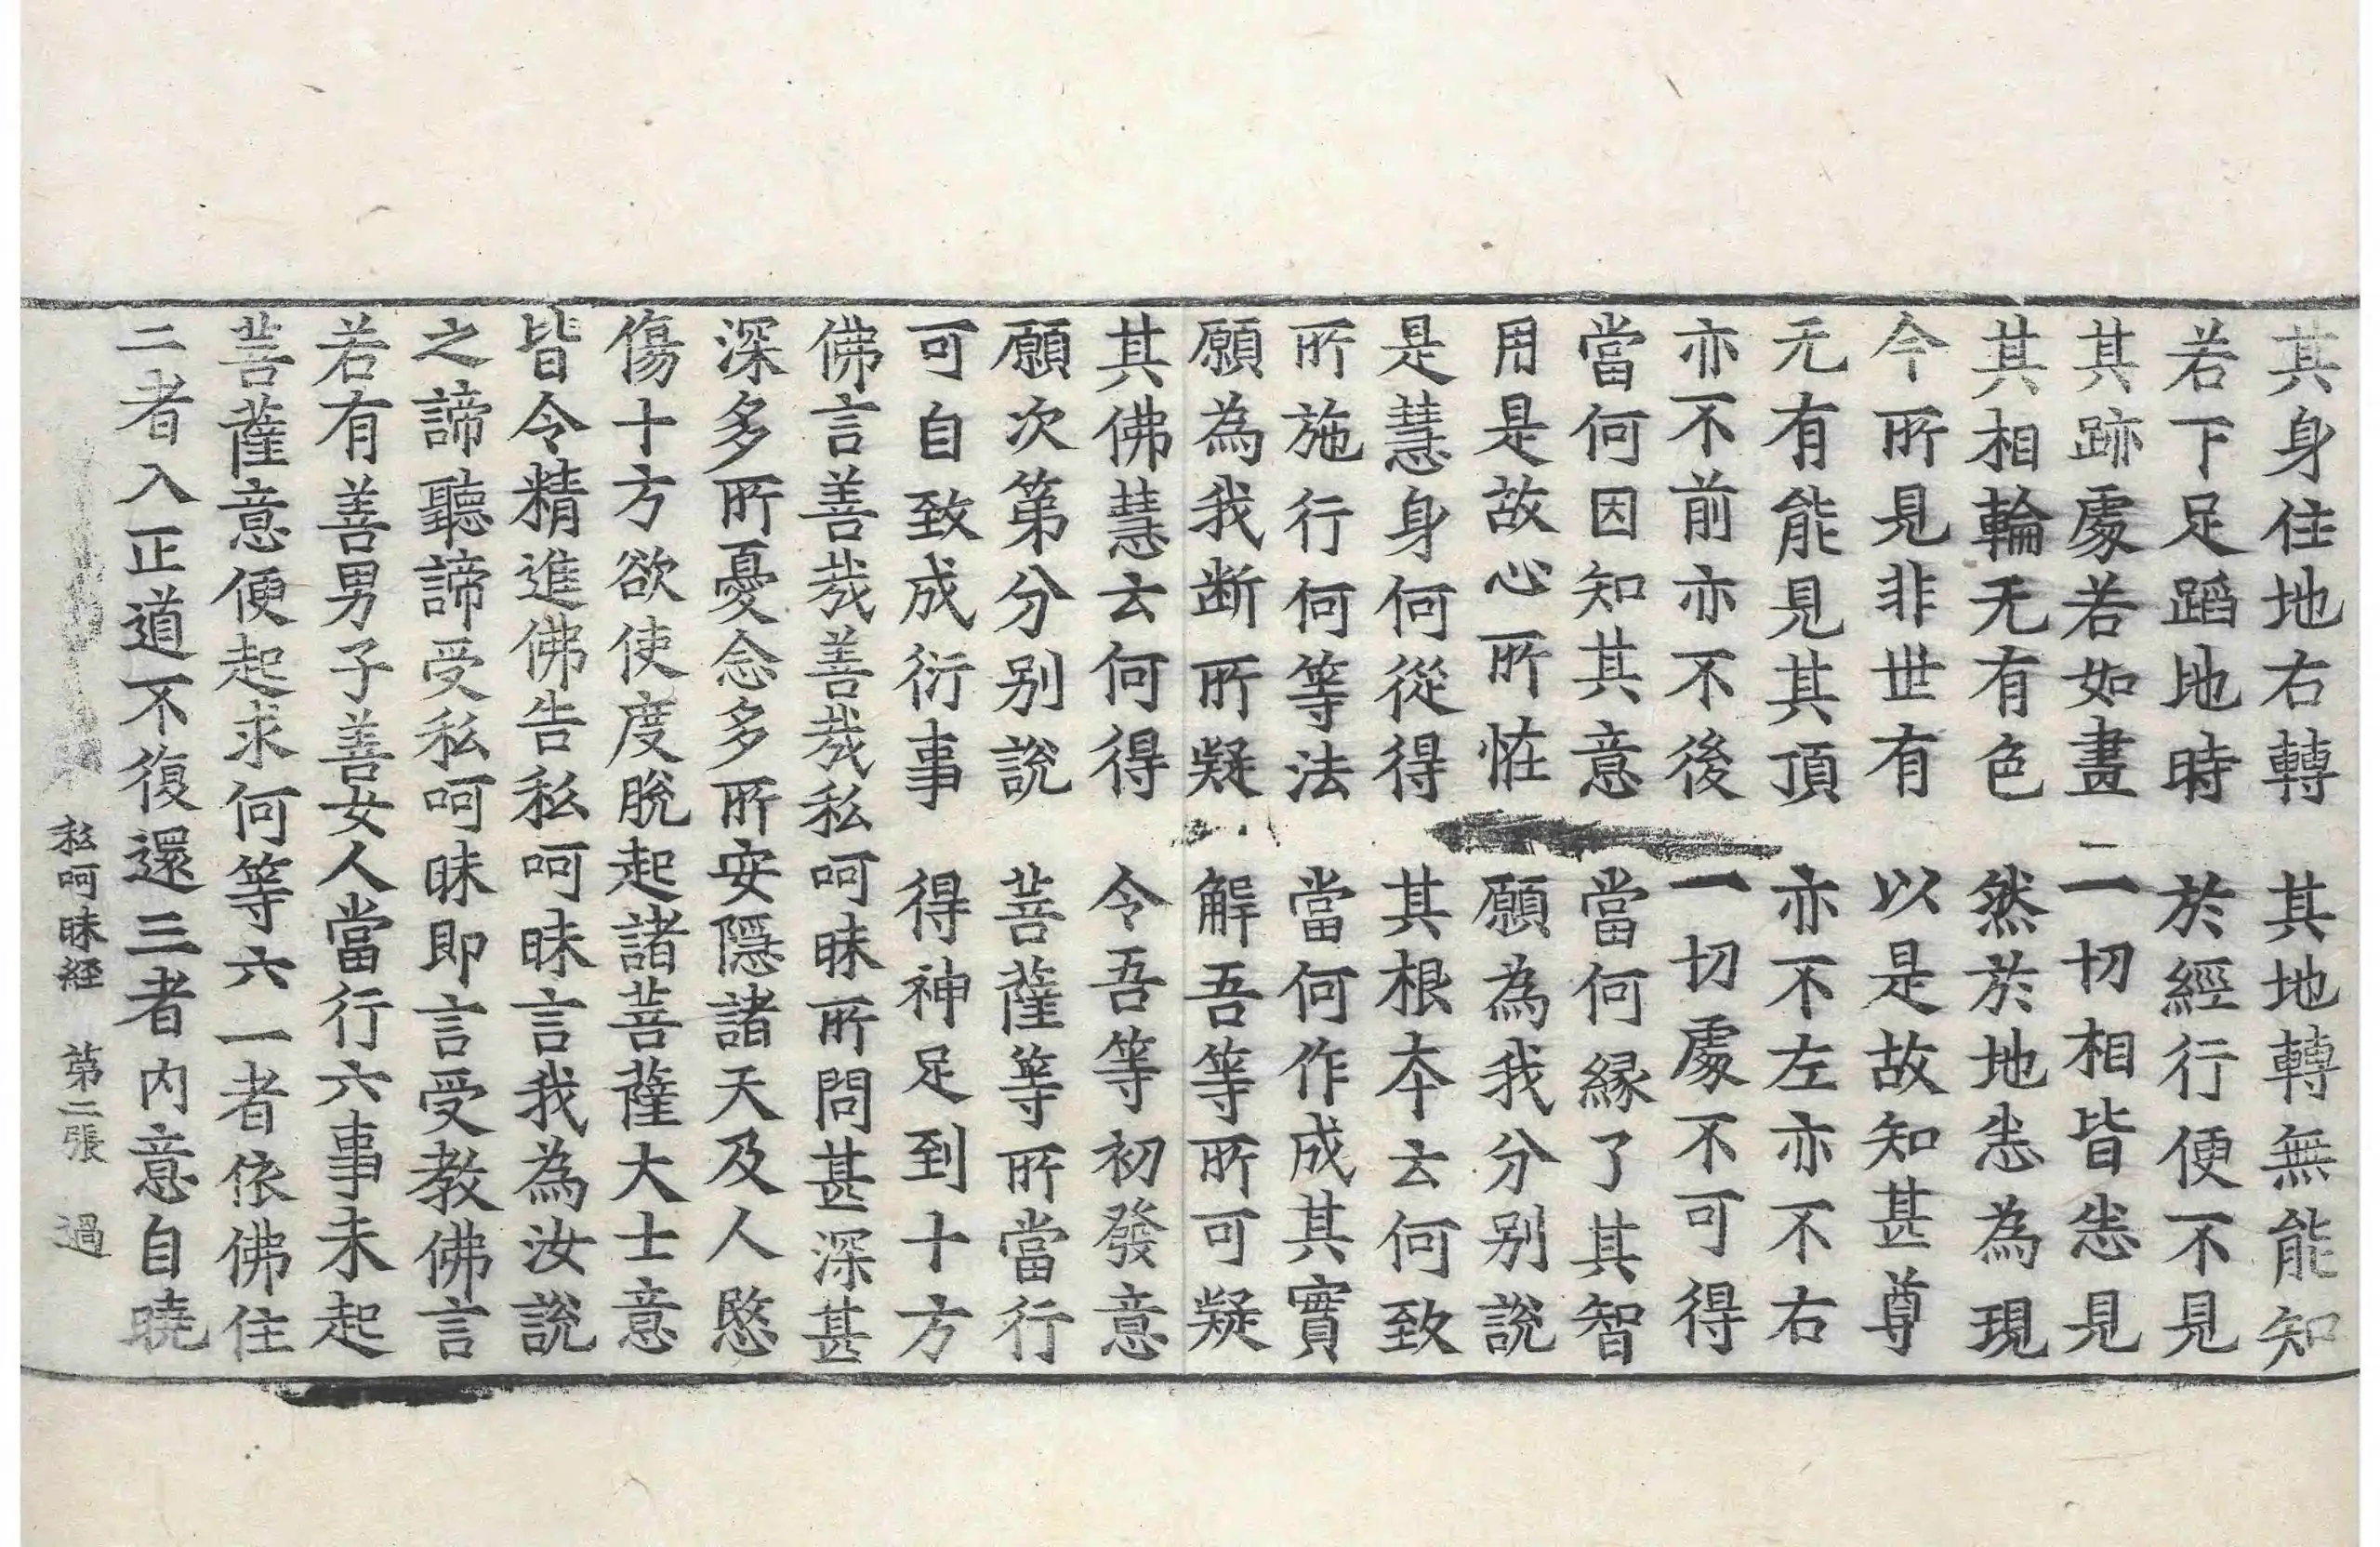 其身住地右轉　其地轉無能知
若下足蹈地時　於經行便不見
其跡處若如畫　一切相皆悉見
其相輪无有色　然於地悉為現
今所見非世有　以是故知甚尊
无有能見其頂　亦不左亦不右
亦不前亦不後　一切處不可得
當何因知其意　當何緣了其智
用是故心所恠　願為我分别說
是慧身何從得　其根夲云何致
所施行何等法　當何作成其實
願為我断所疑　解吾等所可疑
其佛慧云何得　令吾等初發意
願次第分别說　菩薩等所當行
可自致成衍事　得神足到十方
佛言善哉善哉私呵昧所問甚深甚
深多所憂念多所安隱諸天及人愍
傷十方欲使度脫起諸菩薩大士意
皆令精進佛告私呵昧言我為汝說
之諦聽諦受私呵昧即言受教佛言
若有善男子善女人當行六事未起
菩薩意便起求何等六一者依佛住
二者入正道不復還三者内意自曉
私呵昧經　第二張　過